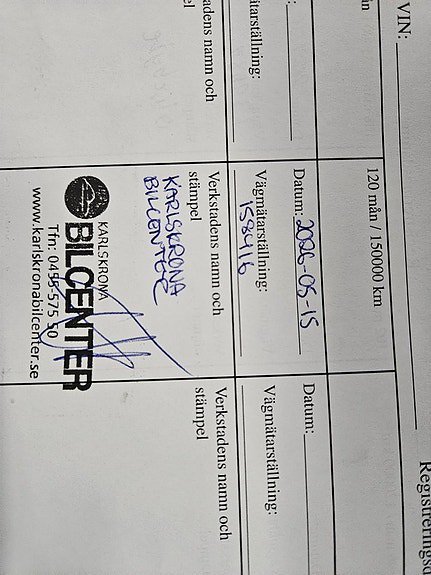 VIN:
Registreringsd
in
120 mån / 150000 km
tarställning:
Datum: 2026-05-15
Vägmätarställning:
158416
Datum:
Vägmätarställning:
tadens namn och
el
Verkstadens namn och
stämpel
KARLSKRONA
BILCENTER
KARLSKRONA
BILCENTER
Tfn: 0455-575 50
www.karlskronabilcenter.se
Verkstadens namn och
stämpel